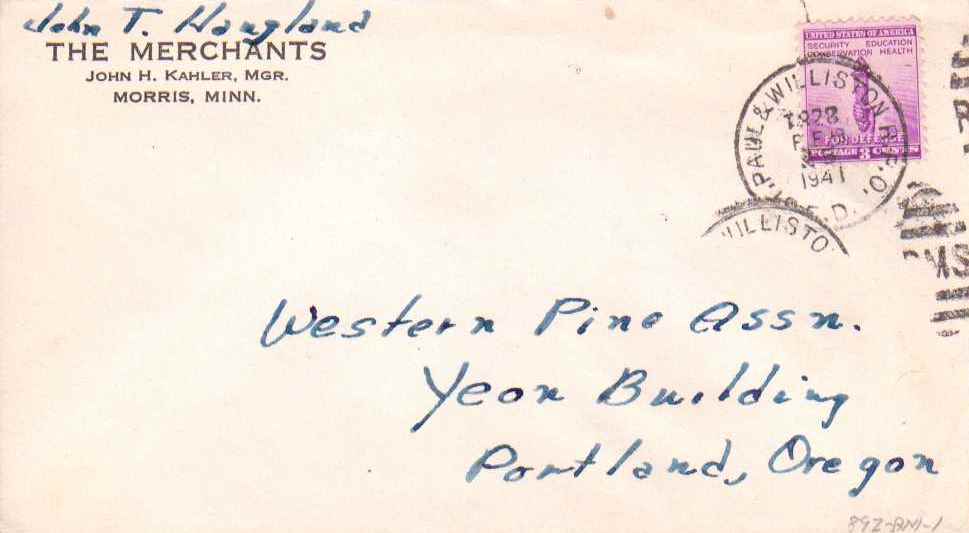 John T. Haugland
THE MERCHANTS
JOHN H. KAHLER, MGR.
MORRIS, MINN.
UNITED STATES OF AMERICA
SECURITY EDUCATION
CONSERVATION HEALTH
FOR DEFENSE
POSTAGE 3 CENTS
ST. PAUL & WILLISTON R.P.O.
TR 28
FEB
1941
E.D.
WILLISTO
RMS
Western Pine Assn.
Yeon Building
Portland, Oregon
892-BN1-1